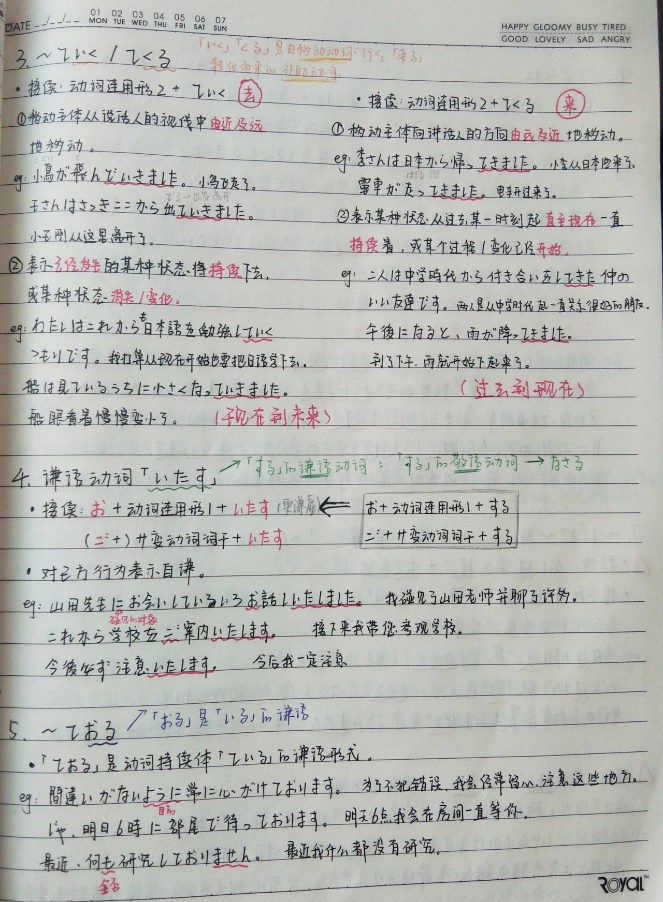 DATE
01 02 03 04 05 06 07
MON TUE WED THU FRI SAT SUN
HAPPY GLOOMY BUSY TIRED
GOOD LOVELY SAD ANGRY
3. ~ていく/てくる
「いく」「くる」是由移动动词「行く」「来る」
转化而来的补助动词
• 接续: 动词连用形2 + ていく 去
①移动主体从说话人的视线中由近及远
地移动。
eg: 小鳥が飛んでいきました。 小鸟飞走了。
王さんはさっきここから出ていきました。
小王刚从这里离开了。
②表示已经发生的某种状态将持续下去,
或某种状态消失/变化。
eg: わたしはこれからも日本語を勉強していく
つもりです。 我打算从现在开始也要把日语学下去。
船は見ているうちに小さくなっていきました。
船眼看着慢慢变小了。 (现在到未来)
• 接续: 动词连用形2+てくる 来
①移动主体向讲话人的方向由远及近地移动。
eg: 李さんは日本から帰ってきました。 小李从日本回来了。
電車が走ってきました。 电车开过来了。
②表示某种状态从过去某一时刻起直至现在一直
持续着,或某个过程/变化已经开始。
eg: 二人は中学時代から付き合い出してきた仲の
いい友達です。 两人是从中学时代起一直关系很好的朋友。
午後になると、雨が降ってきました。
到了下午,雨就开始下起来了。
(过去到现在)
4. 谦语动词「いたす」 → 「する」的谦语动词; 「する」的敬语动词 → なさる
• 接续: お + 动词连用形1 + いたす (更谦虚) ⇐ お+动词连用形1+する
(ご+) サ变动词词干 + いたす ご+サ变动词词干+する
• 对己方行为表示自谦。
eg: 山田先生にお会いしているいろお話しいたしました。 我碰见了山田老师并聊了许多。
碰见的对象
これから学校をご案内いたします。 接下来我带您参观学校。
今後必ず注意いたします。 今后我一定注意
5. ~ておる ↗「おる」是「いる」的谦语
•「ておる」是动词持续体「ている」的谦语形式。
eg: 間違いがないように常に心がけております。 为了不犯错误,我会经常留心、注意这些地方。
目的
じゃ、明日6時に部屋で待っております。 明天6点我会在房间一直等你。
最近、何も研究しておりません。 最近我什么都没有研究。
全否
ROYAL